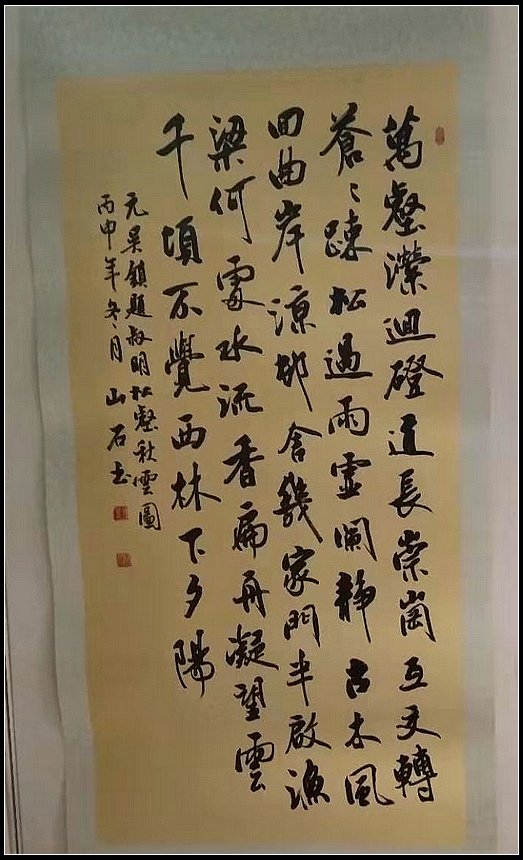 萬壑瀠迴磴道長崇崗互叉轉
蒼〻踈松過雨虛闌靜古木風
回曲岸涼邨舍幾家門半啟漁
梁何處水流香扁舟凝望雲
千頃不覺西林下夕陽
元吴鎮題叔明松壑秋雲圖
丙申年冬月山石书